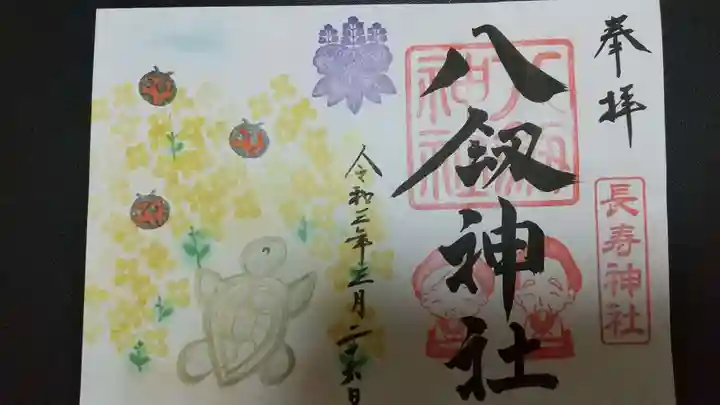 奉拝
長寿神社
八釼神社
令和三年三月二日